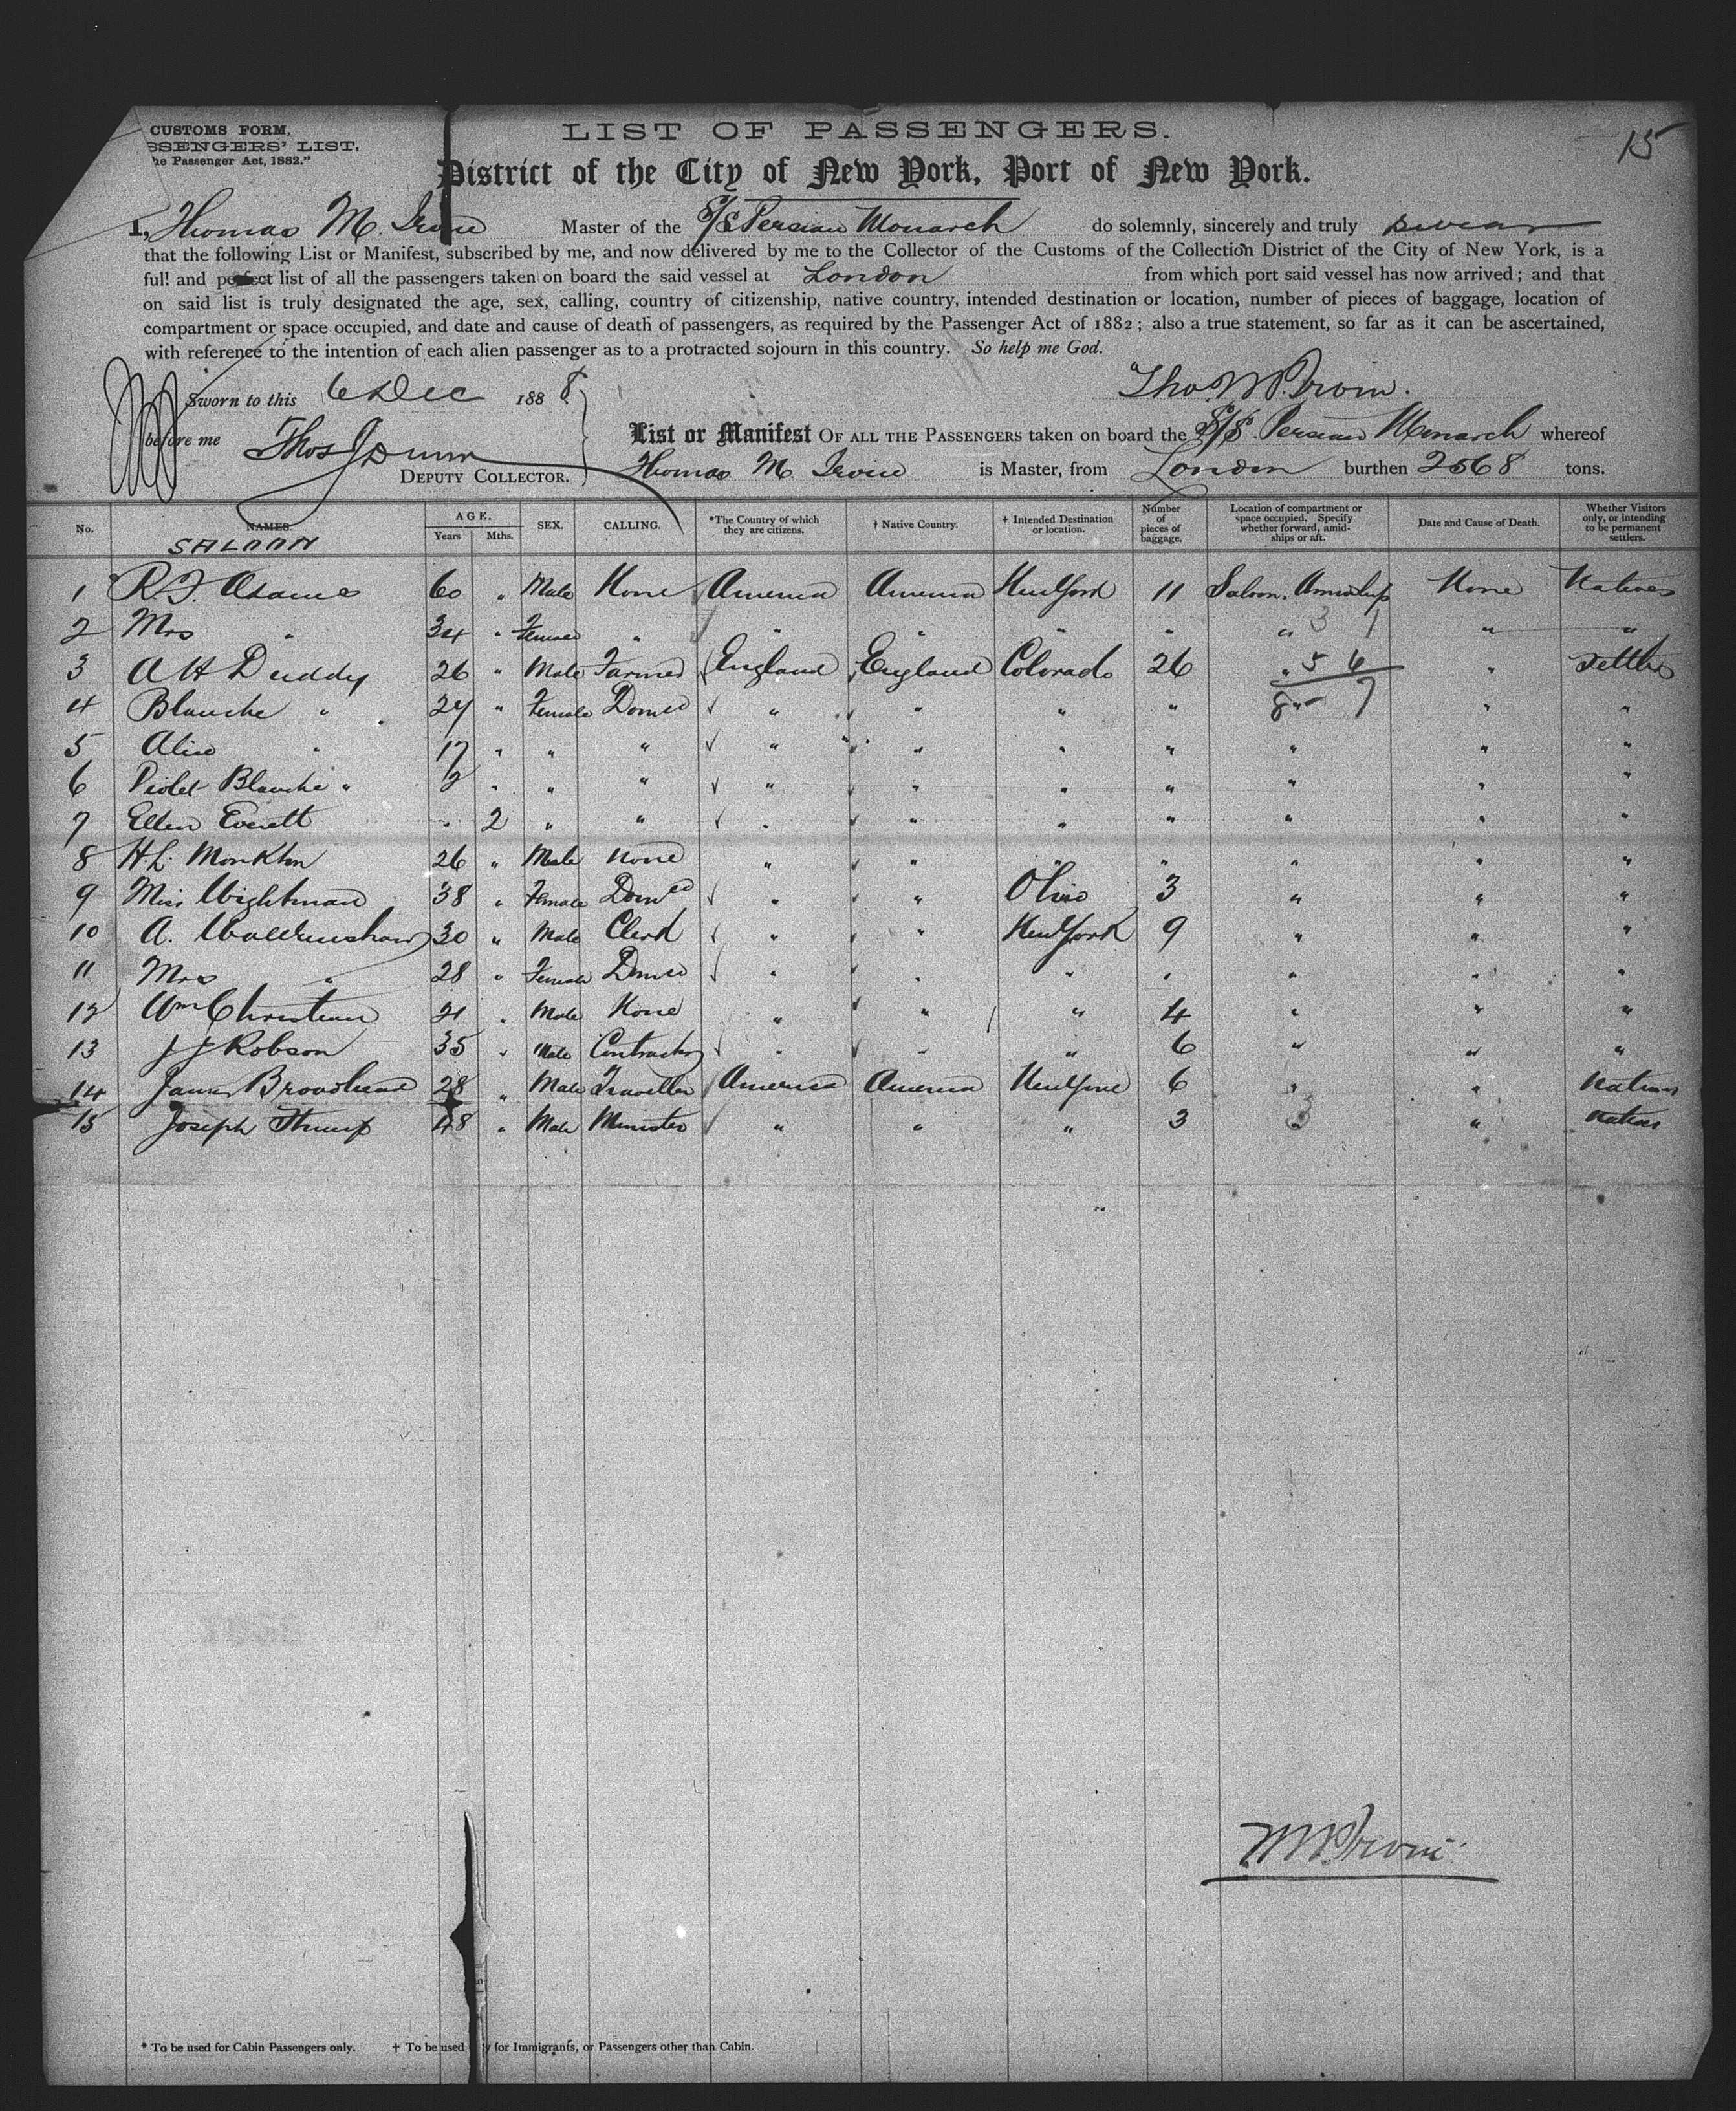 CUSTOMS FORM,
SSENGERS' LIST,
he Passenger Act, 1882."
LIST OF PASSENGERS.
15
District of the City of New York, Port of New York.
I, Thomas M. Irvin Master of the S/S Persian Monarch do solemnly, sincerely and truly swear
that the following List or Manifest, subscribed by me, and now delivered by me to the Collector of the Customs of the Collection District of the City of New York, is a
full and perfect list of all the passengers taken on board the said vessel at London from which port said vessel has now arrived; and that
on said list is truly designated the age, sex, calling, country of citizenship, native country, intended destination or location, number of pieces of baggage, location of
compartment or space occupied, and date and cause of death of passengers, as required by the Passenger Act of 1882; also a true statement, so far as it can be ascertained,
with reference to the intention of each alien passenger as to a protracted sojourn in this country. So help me God.
Sworn to this 6 Dec 1888 Tho M Irvin.
before me Thos J Dunn
DEPUTY COLLECTOR.
List or Manifest OF ALL THE PASSENGERS taken on board the S/S. Persian Monarch whereof
Thomas M. Irvin is Master, from London burthen 2568 tons.
No. NAMES. AGE. Years Mths. SEX. CALLING. *The Country of which they are citizens. † Native Country. + Intended Destination or location. Number of pieces of baggage. Location of compartment or space occupied. Specify whether forward, amidships or aft. Date and Cause of Death. Whether Visitors only, or intending to be permanent settlers.
SALOON
1 R. J. Adams 60 " Male None America America New York 11 Saloon. Amidship None Natives
2 Mrs " 34 " Female " " " " " " 3 1 " "
3 A H Duddy 26 " Male Farmer England England Colorado 26 " 5 6 " Settlers
4 Blanche " 27 " Female Domec " " " " 8 " 7 " "
5 Alice " 17 " " " " " " " " " "
6 Violet Blanche " 2 " " " " " " " " " "
7 Ellen Everett " 2 " " " " " " " " "
8 H L. Monkton 26 " Male None " " " " " " "
9 Miss Wightman 38 " Female Domec " " Ohio 3 " " "
10 A. 30 " Male Clerk " " New York 9 " " "
11 Mrs " 28 " Female Domec " " " " " " "
12 Wm Christian 21 " Male None " " " 4 " " "
13 J J Robson 35 " Male Contractor " " " 6 " " "
14 James Broadhead 28 " Male Traveller America America New York 6 " " Natives
15 Joseph 48 " Male Minister " " " 3 " " Natives
M Irvin
* To be used for Cabin Passengers only. † To be used y for Immigrants, or Passengers other than Cabin.